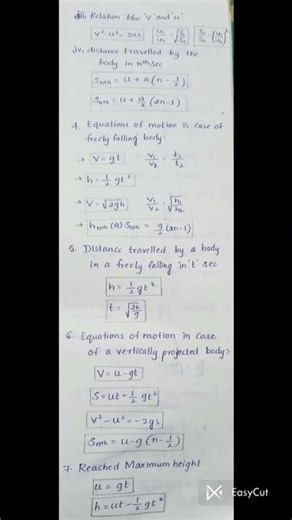 iii, Relation b/w 'v' and 'u'
v² - u² = 2as
iv, distance travelled by the
body in nth sec
Snth = u + a(n - 1/2)
Snth = u + a/2 (2n-1)
4. Equations of motion is case of
freely falling body:
→ V = gt V₁/V₂ = t₁/t₂
→ h = 1/2 gt²
→ V = √2gh V₁/V₂ = √h₁/h₂
→ hnth (or) Snth = g/2 (2n-1)
5. Distance travelled by a body
in a freely falling in 't' sec
h = 1/2 gt²
t = √2h/g
6. Equations of motion in case
of a vertically projected body:-
V = u - gt
S = ut - 1/2 gt²
V² - u² = -2gs
Snth = u - g(n - 1/2)
7. Reached Maximum height
u = gt
h = ut - 1/2 gt²
EasyCut